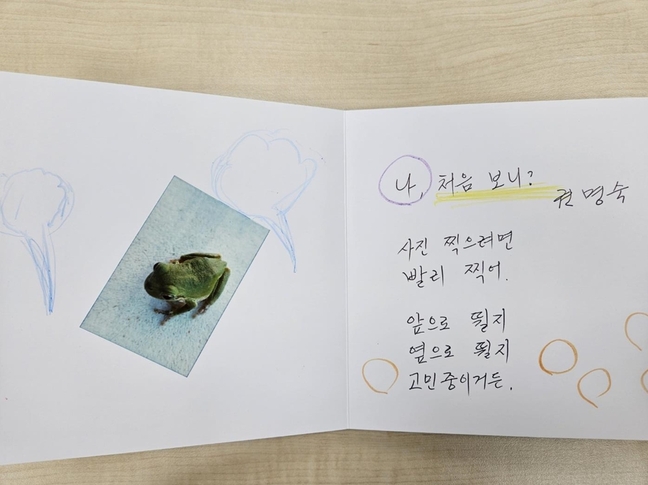 나, 처음 보니?
권명숙
사진 찍으려면
빨리 찍어.
앞으로 뛸지
옆으로 뛸지
고민중이거든.